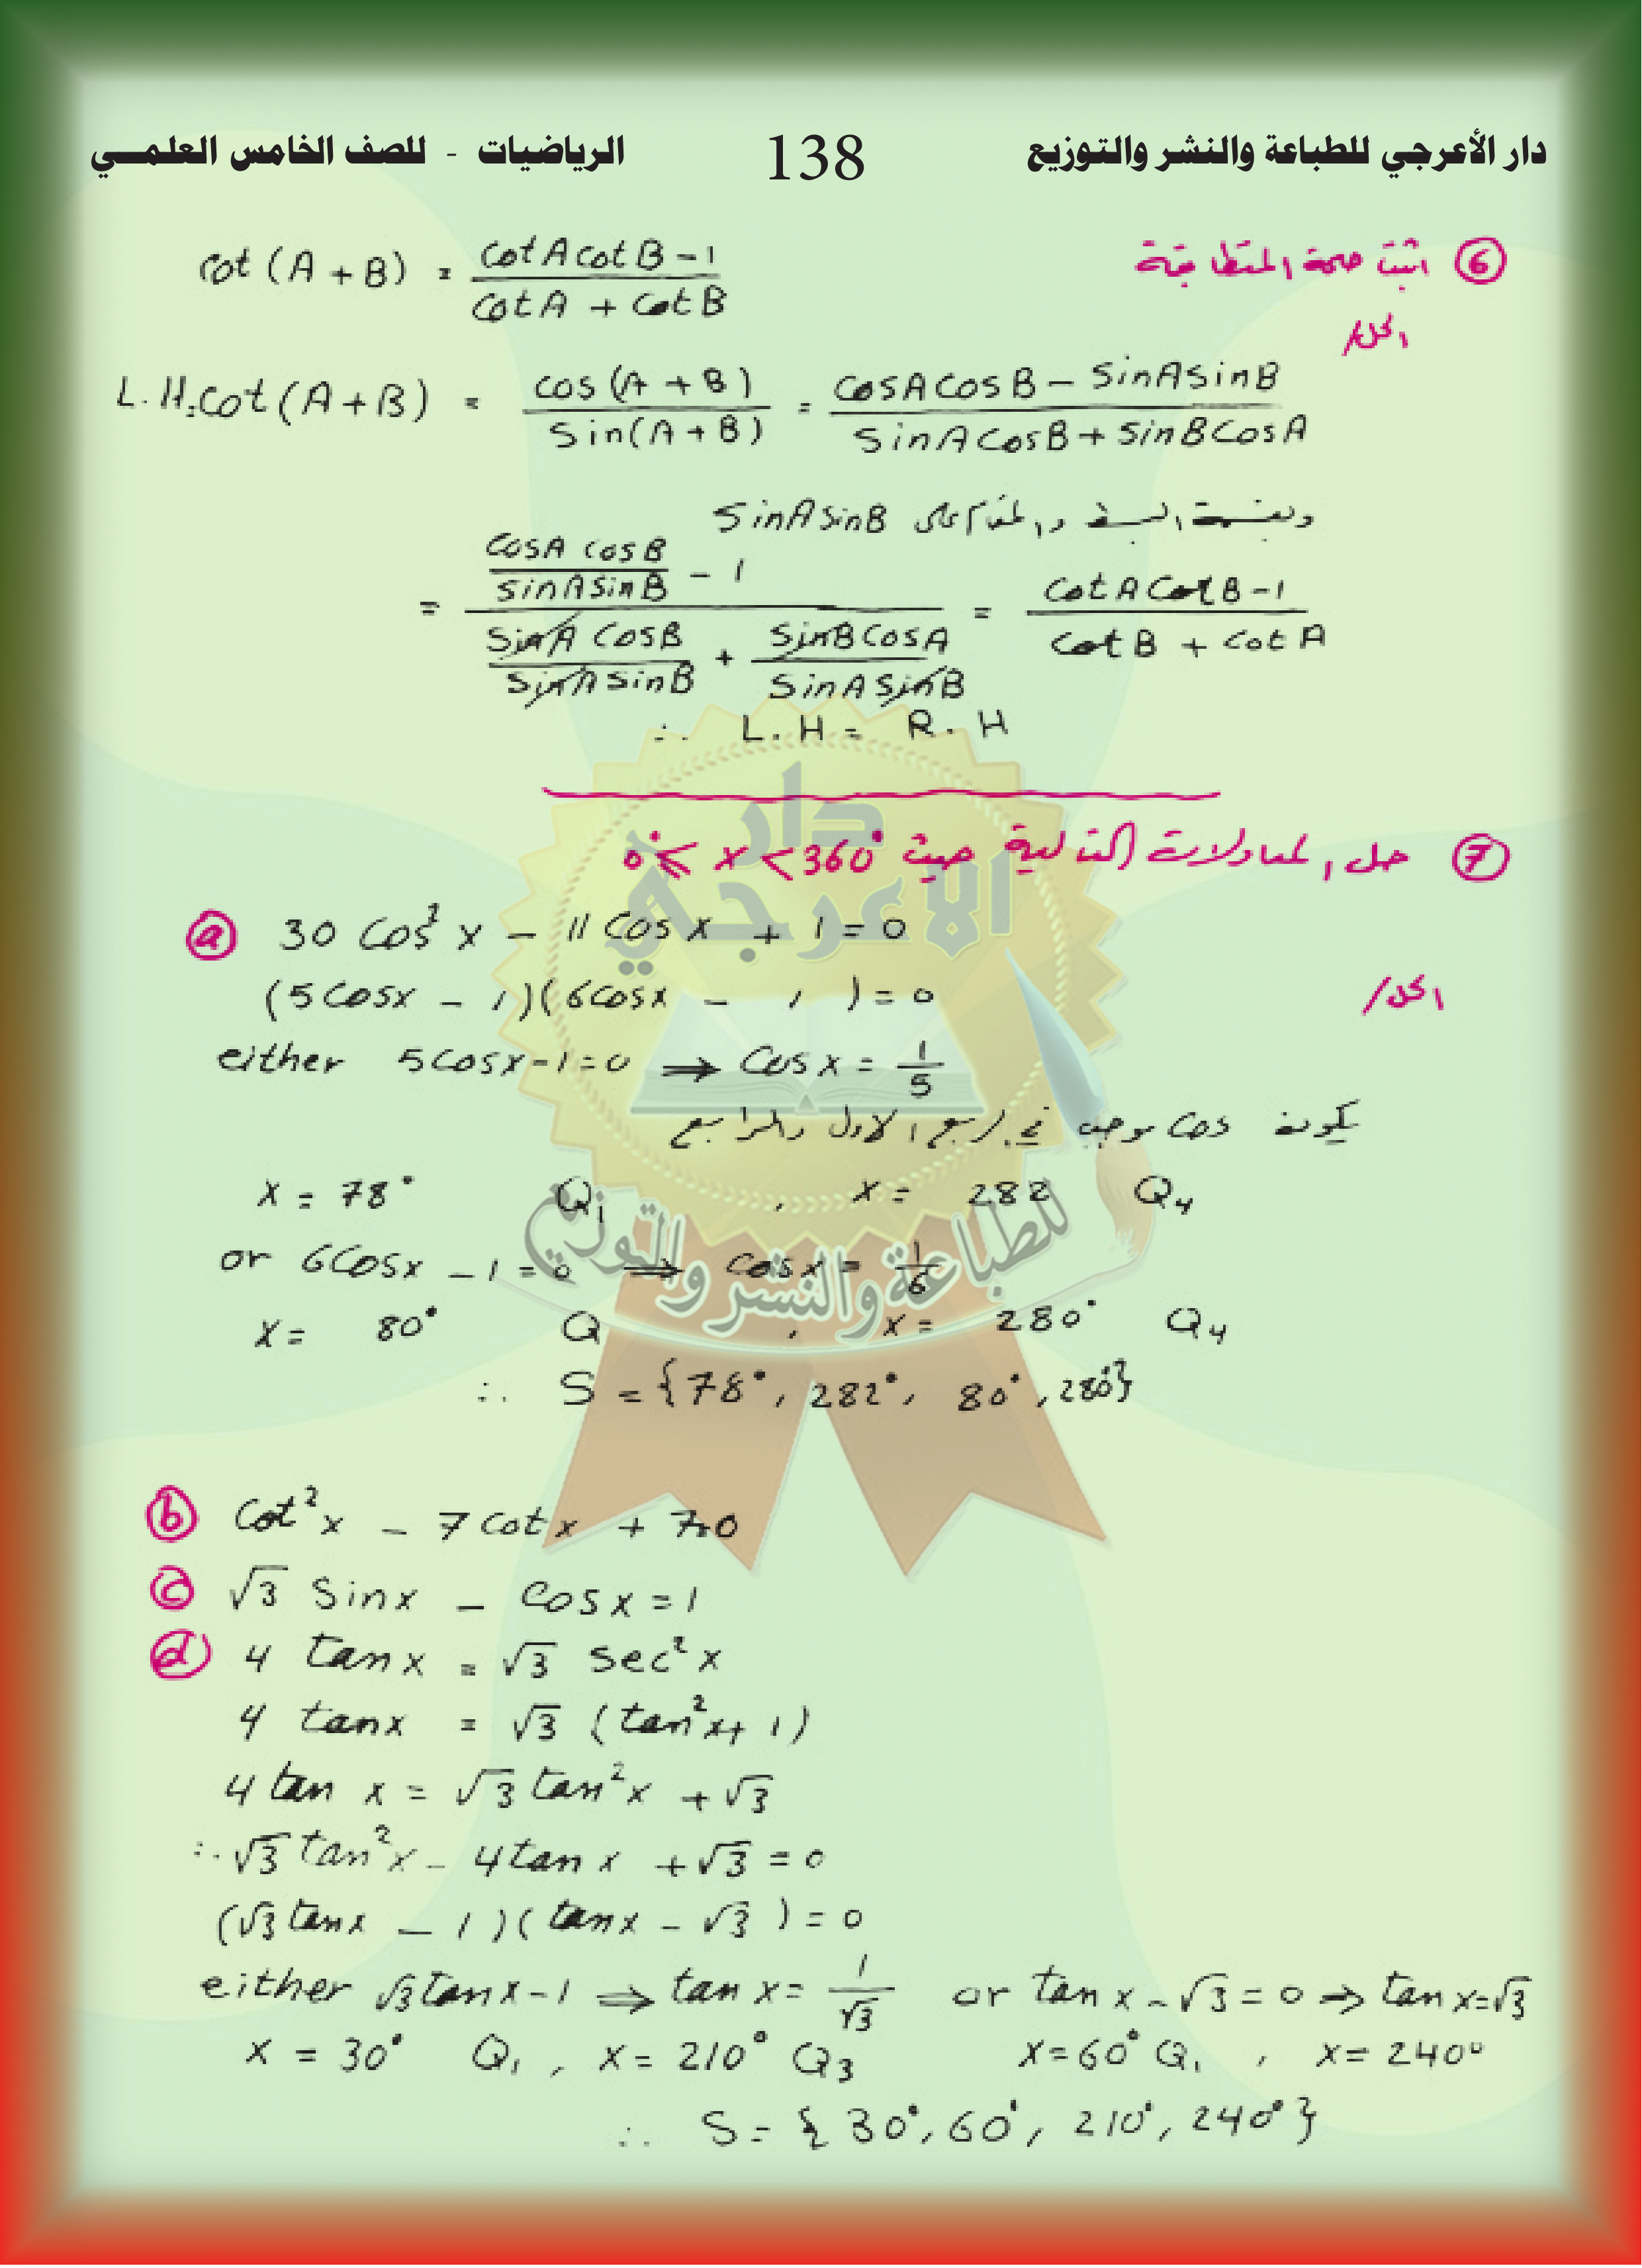 دار الأعرجي للطباعة والنشر والتوزيع 138 الرياضيات - للصف الخامس العلمـــي
⑥ اثبت صحة المتطابقة cot (A + B) = (cotA cotB - 1) / (cotA + cotB)
الحل/
L.H: cot (A+B) = cos (A + B) / sin (A + B) = (cosA cosB - sinA sinB) / (sinA cosB + sinB cosA)
وبقسمة البسط والمقام على sinA sinB
= (cosA cosB / sinA sinB - 1) / (sinA cosB / sinA sinB + sinB cosA / sinA sinB) = (cotA cotB - 1) / (cotB + cotA)
∴ L.H = R.H
⑦ حل المعادلات التالية حيث 0° ≤ x < 360°
ⓐ 30 cos² x - 11 cos x + 1 = 0
الحل/
(5 cosx - 1)(6cosx - 1) = 0
either 5cosx-1=0 ⇒ cos x = 1/5
يكون cos موجب في الربع الاول والرابع
x = 78° Q₁ , x = 282 Q₄
or 6cosx - 1 = 0 ⇒ cosx = 1/6
x = 80° Q , x = 280° Q₄
∴ S = {78°, 282°, 80°, 280°}
ⓑ cot² x - 7 cot x + 7=0
ⓒ √3 sinx - cosx = 1
ⓓ 4 tanx = √3 sec² x
4 tanx = √3 (tan² x + 1)
4 tan x = √3 tan² x + √3
∴ √3 tan² x - 4tan x + √3 = 0
(√3 tanx - 1)(tanx - √3) = 0
either √3 tanx-1 ⇒ tan x = 1/√3 or tan x - √3 = 0 ⇒ tan x=√3
x = 30° Q₁ , x = 210° Q₃ x=60° Q₁ , x= 240°
∴ S = {30°, 60°, 210°, 240°}
دار
الاعرجي
للطباعة والنشر والتوزيع